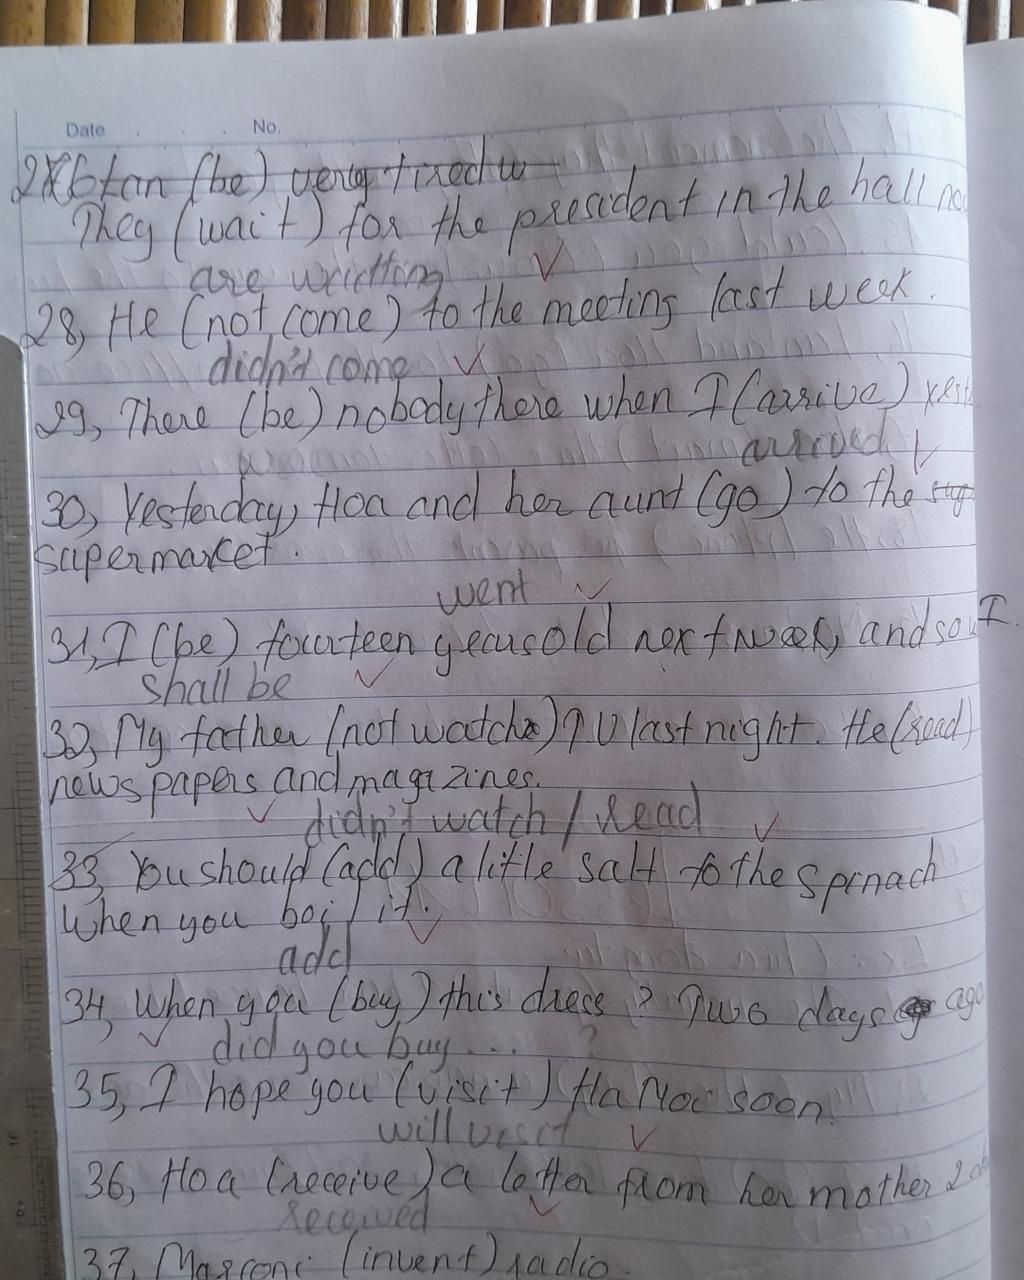 Date No.
(be) very tired w
They (wait) for the president in the hall no
are
28, He (not come) to the meeting last week.
didn't come
29, There (be) nobody there when I (arrive) yest
arrived
30, Yesterday, Hoa and her aunt (go) to the
supermarket.
went
31, I (be) fourteen years old next week, and so I
shall be
32, My father (not watch) TV last night. He (read)
newspapers and magazines.
didn't watch / read
33, You should (add) a little salt to the spinach
When you boil it.
add
34, When you (buy) this dress? Two days ago
did you buy...?
35, I hope you (visit) Ha Noi soon.
will visit
36, Hoa (receive) a letter from her mother 2
received
37, Marconi (invent) radio.